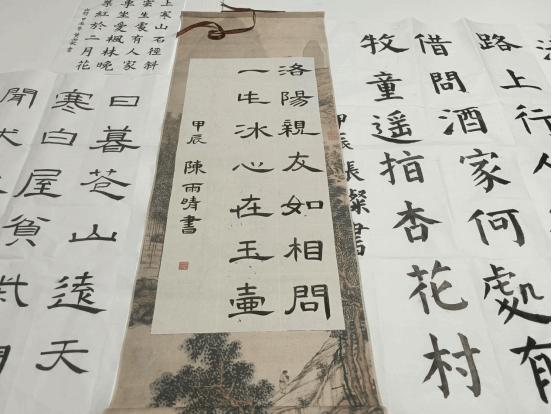 路上行人
借問酒家何處有
牧童遙指杏花村
甲辰 張燦書
洛陽親友如相問
一片冰心在玉壺
甲辰 陳雨晴書
上寒山石徑斜
雲生處有人家
車坐愛楓林晚
葉紅於二月花
日暮蒼山遠天
寒白屋貧柴門
聞犬